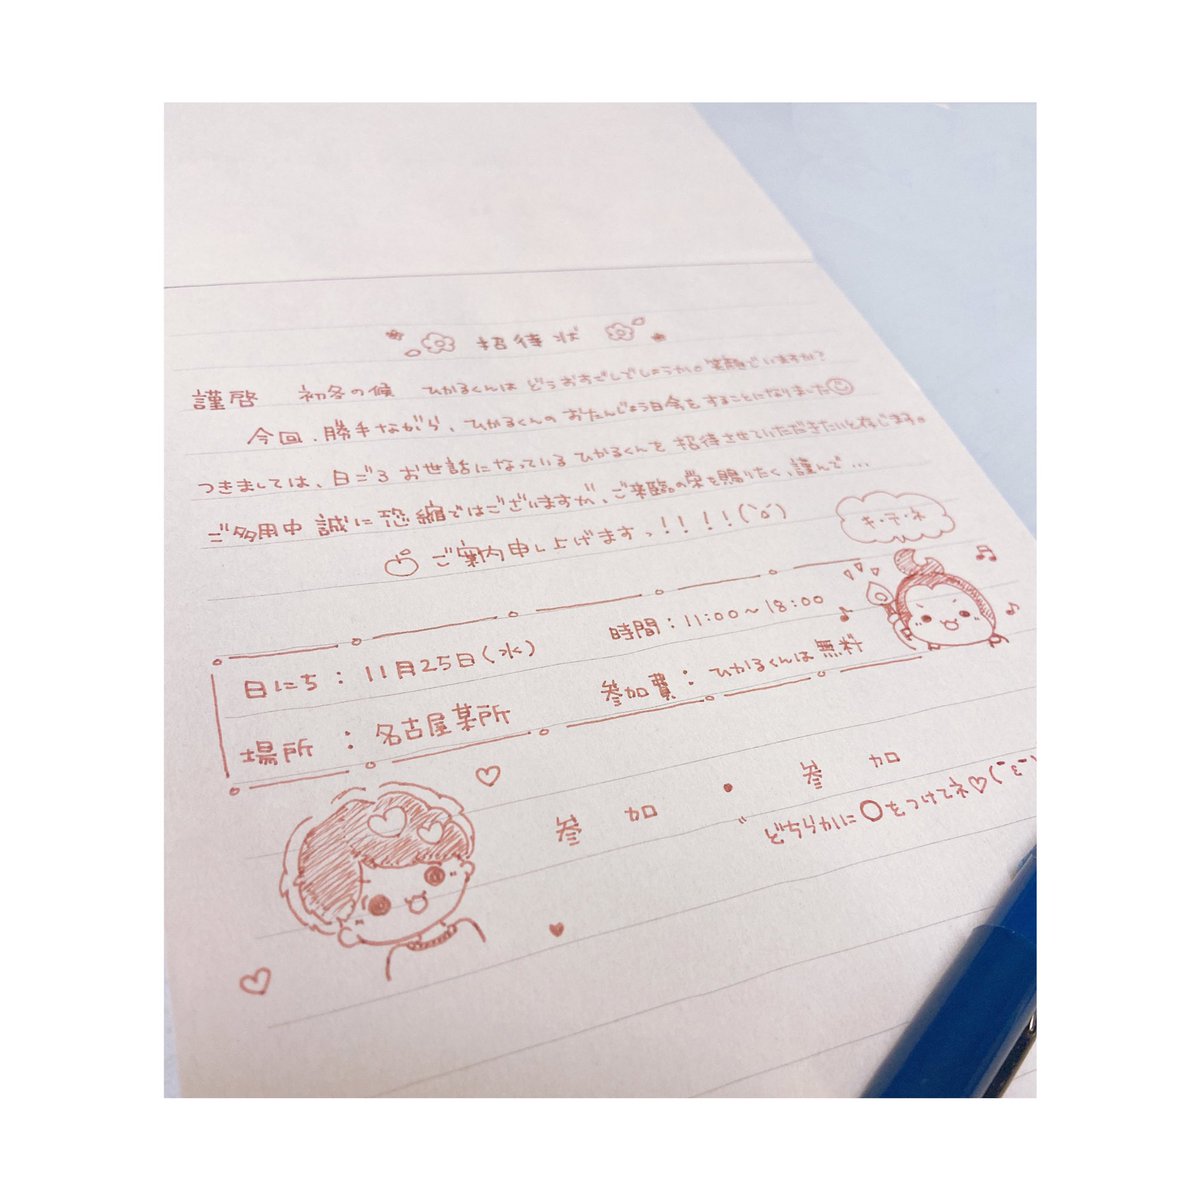 招待状
謹啓 初冬の候 ひかるくんは どうおすごしでしょうか。笑顔でいますか?
今回、勝手ながら、ひかるくんの おたんじょう日会を することになりました
つきましては、日ごろ お世話になっている ひかるくんを 招待させていただきたいと存じます。
ご多用中 誠に 恐縮ではございますが、ご来臨の栄を賜りたく、謹んで…
ご案内申し上げますっ!!!!(`ω´)
キ・テ・ネ
日にち:11月25日(水) 時間:11:00~18:00
場所 :名古屋某所 参加費:ひかるくんは 無料
参 加 ・ 参 加
どちらかに〇をつけてネ♡)